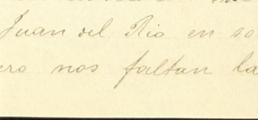 Juan del Rio en so
ero nos faltan la